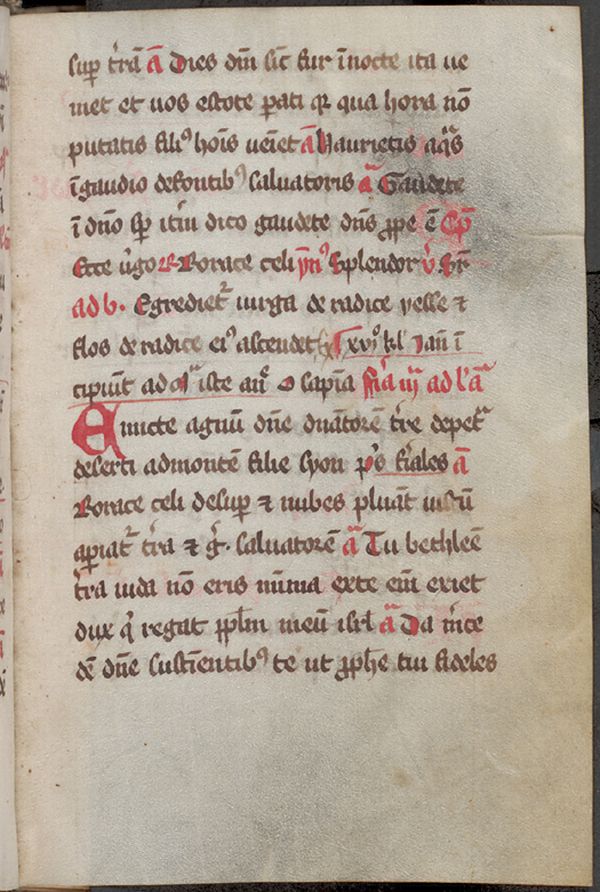 sup̱ t̄rā ā Dies dn̄i sic̄ fur ī nocte ita ue
niet et uos estote ꝑati qꝛ qua hora nō
putatis filiꝰ hoīs ueīet ā Haurietis aq̄s
ī gaudio de fontibꝰ saluatoris ā Gaudete
ī dn̄o sp̄ itīu dico gaudete dn̄s ꝓpe ē Cp̄
Ecce u̓go ꝶ Rorate celi ym̄ꝰ Splendor v̓ Er̄
ad b. Egredietᷣ uirga de radice yesse ⁊
flos de radice eiꝰ ascendet xviꝰ kl̓ Jan̄ ī
cipiūt ad iste an̄ O sapīa fīa iij ad l̓ ā
Emitte agnū dn̄e dn̄atorē t̓re de petᷓ
deserti ad montē filie syon p̓s f̓iales ā
Rorate celi desuꝑ ⁊ nubes pluāt iustū
aꝑiatᷣ t̓ra ⁊ g̓. saluatorē ā Tu bethleē
t̓ra iuda nō eris mīma ex te eīn exiet
dux q̓ regat ppl̄m meū isrl̄ ā Da m̓ce
dē dn̄e sustīentibꝰ te ut ꝓphe tui fideles